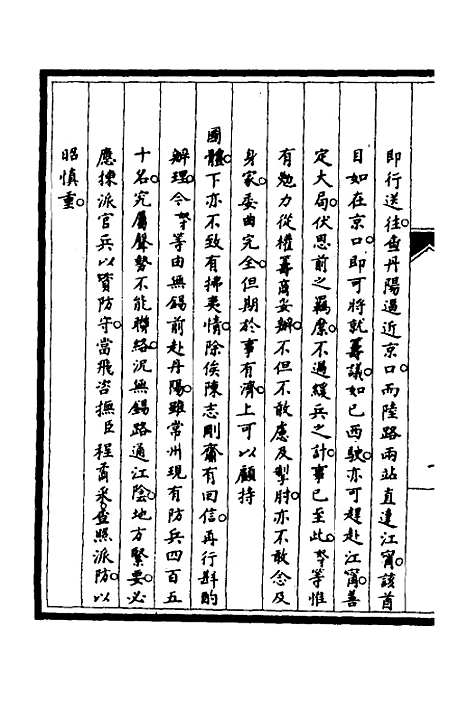 即行送往查丹陽逼近京口而陸路兩站直達江甯該首
目如在京口即可將就籌議如已西駛亦可趕赴江甯善
定大局伏思前之羈縻不過緩兵之計事已至此奴才等惟
有勉力從權籌商妥辦不但不敢慮及掣肘亦不敢念及
身家委曲完全但期於事有濟上可以顧持
國體下亦不致有拂夷情除俟陳志剛齎有回信再行斟酌
辦理今奴才等由無錫前赴丹陽雖常州現有防兵四百五
十名究屬聲勢不能聯絡況無錫路通江陰地方緊要必
應揀派官兵以資防守當飛咨撫臣程矞采查照派防以
昭慎重